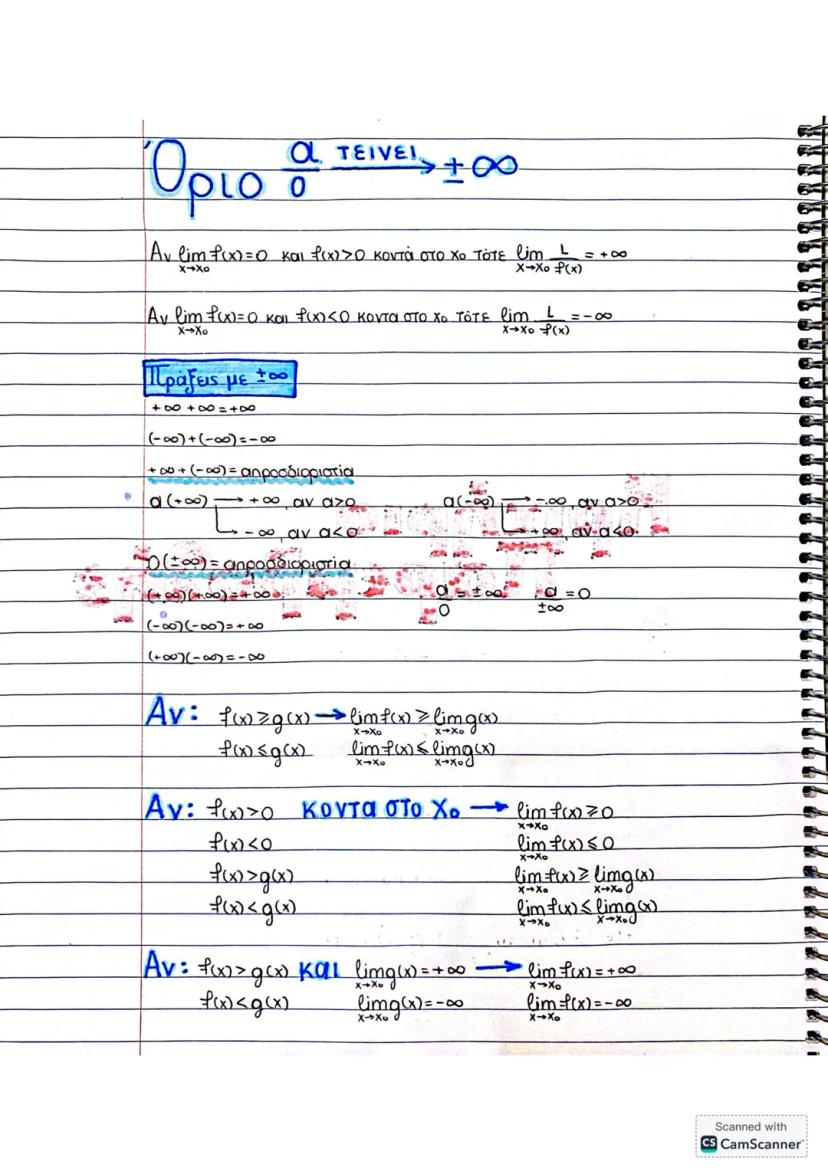 Όριο α/0 τείνει → ±∞
Αν lim x→x₀ f(x)=0 και f(x)>0 κοντά στο x₀ τότε lim x→x₀ L/f(x) = +∞
Αν lim x→x₀ f(x)=0 και f(x)<0 κοντα στο x₀ τότε lim x→x₀ L/f(x) = -∞
Πράξεις με ±∞
+∞ +∞ = +∞
(-∞)+(-∞)=-∞
+∞+(-∞)= απροσδιοριστία
α(+∞) → +∞, αν α>0 α(-∞) → -∞, αν α>0
→ -∞, αν α<0 → +∞, αν α<0
0(±∞)= απροσδιοριστία
(+∞)(+∞)=+∞ α/0 = ±∞, α/±∞ = 0
(-∞)(-∞)=+∞
(+∞)(-∞)=-∞
Αν: f(x)≥g(x) → lim x→x₀ f(x) ≥ lim x→x₀ g(x)
f(x)≤g(x) lim x→x₀ f(x) ≤ lim x→x₀ g(x)
Αν: f(x)>0 κοντα στο x₀ → lim x→x₀ f(x)≥0
f(x)<0 lim x→x₀ f(x)≤0
f(x)>g(x) lim x→x₀ f(x) ≥ lim x→x₀ g(x)
f(x)<g(x) lim x→x₀ f(x) ≤ lim x→x₀ g(x)
Αν: f(x)>g(x) και lim x→x₀ g(x)=+∞ → lim x→x₀ f(x)=+∞
f(x)<g(x) lim x→x₀ g(x)=-∞ lim x→x₀ f(x)=-∞
Scanned with
CS CamScanner